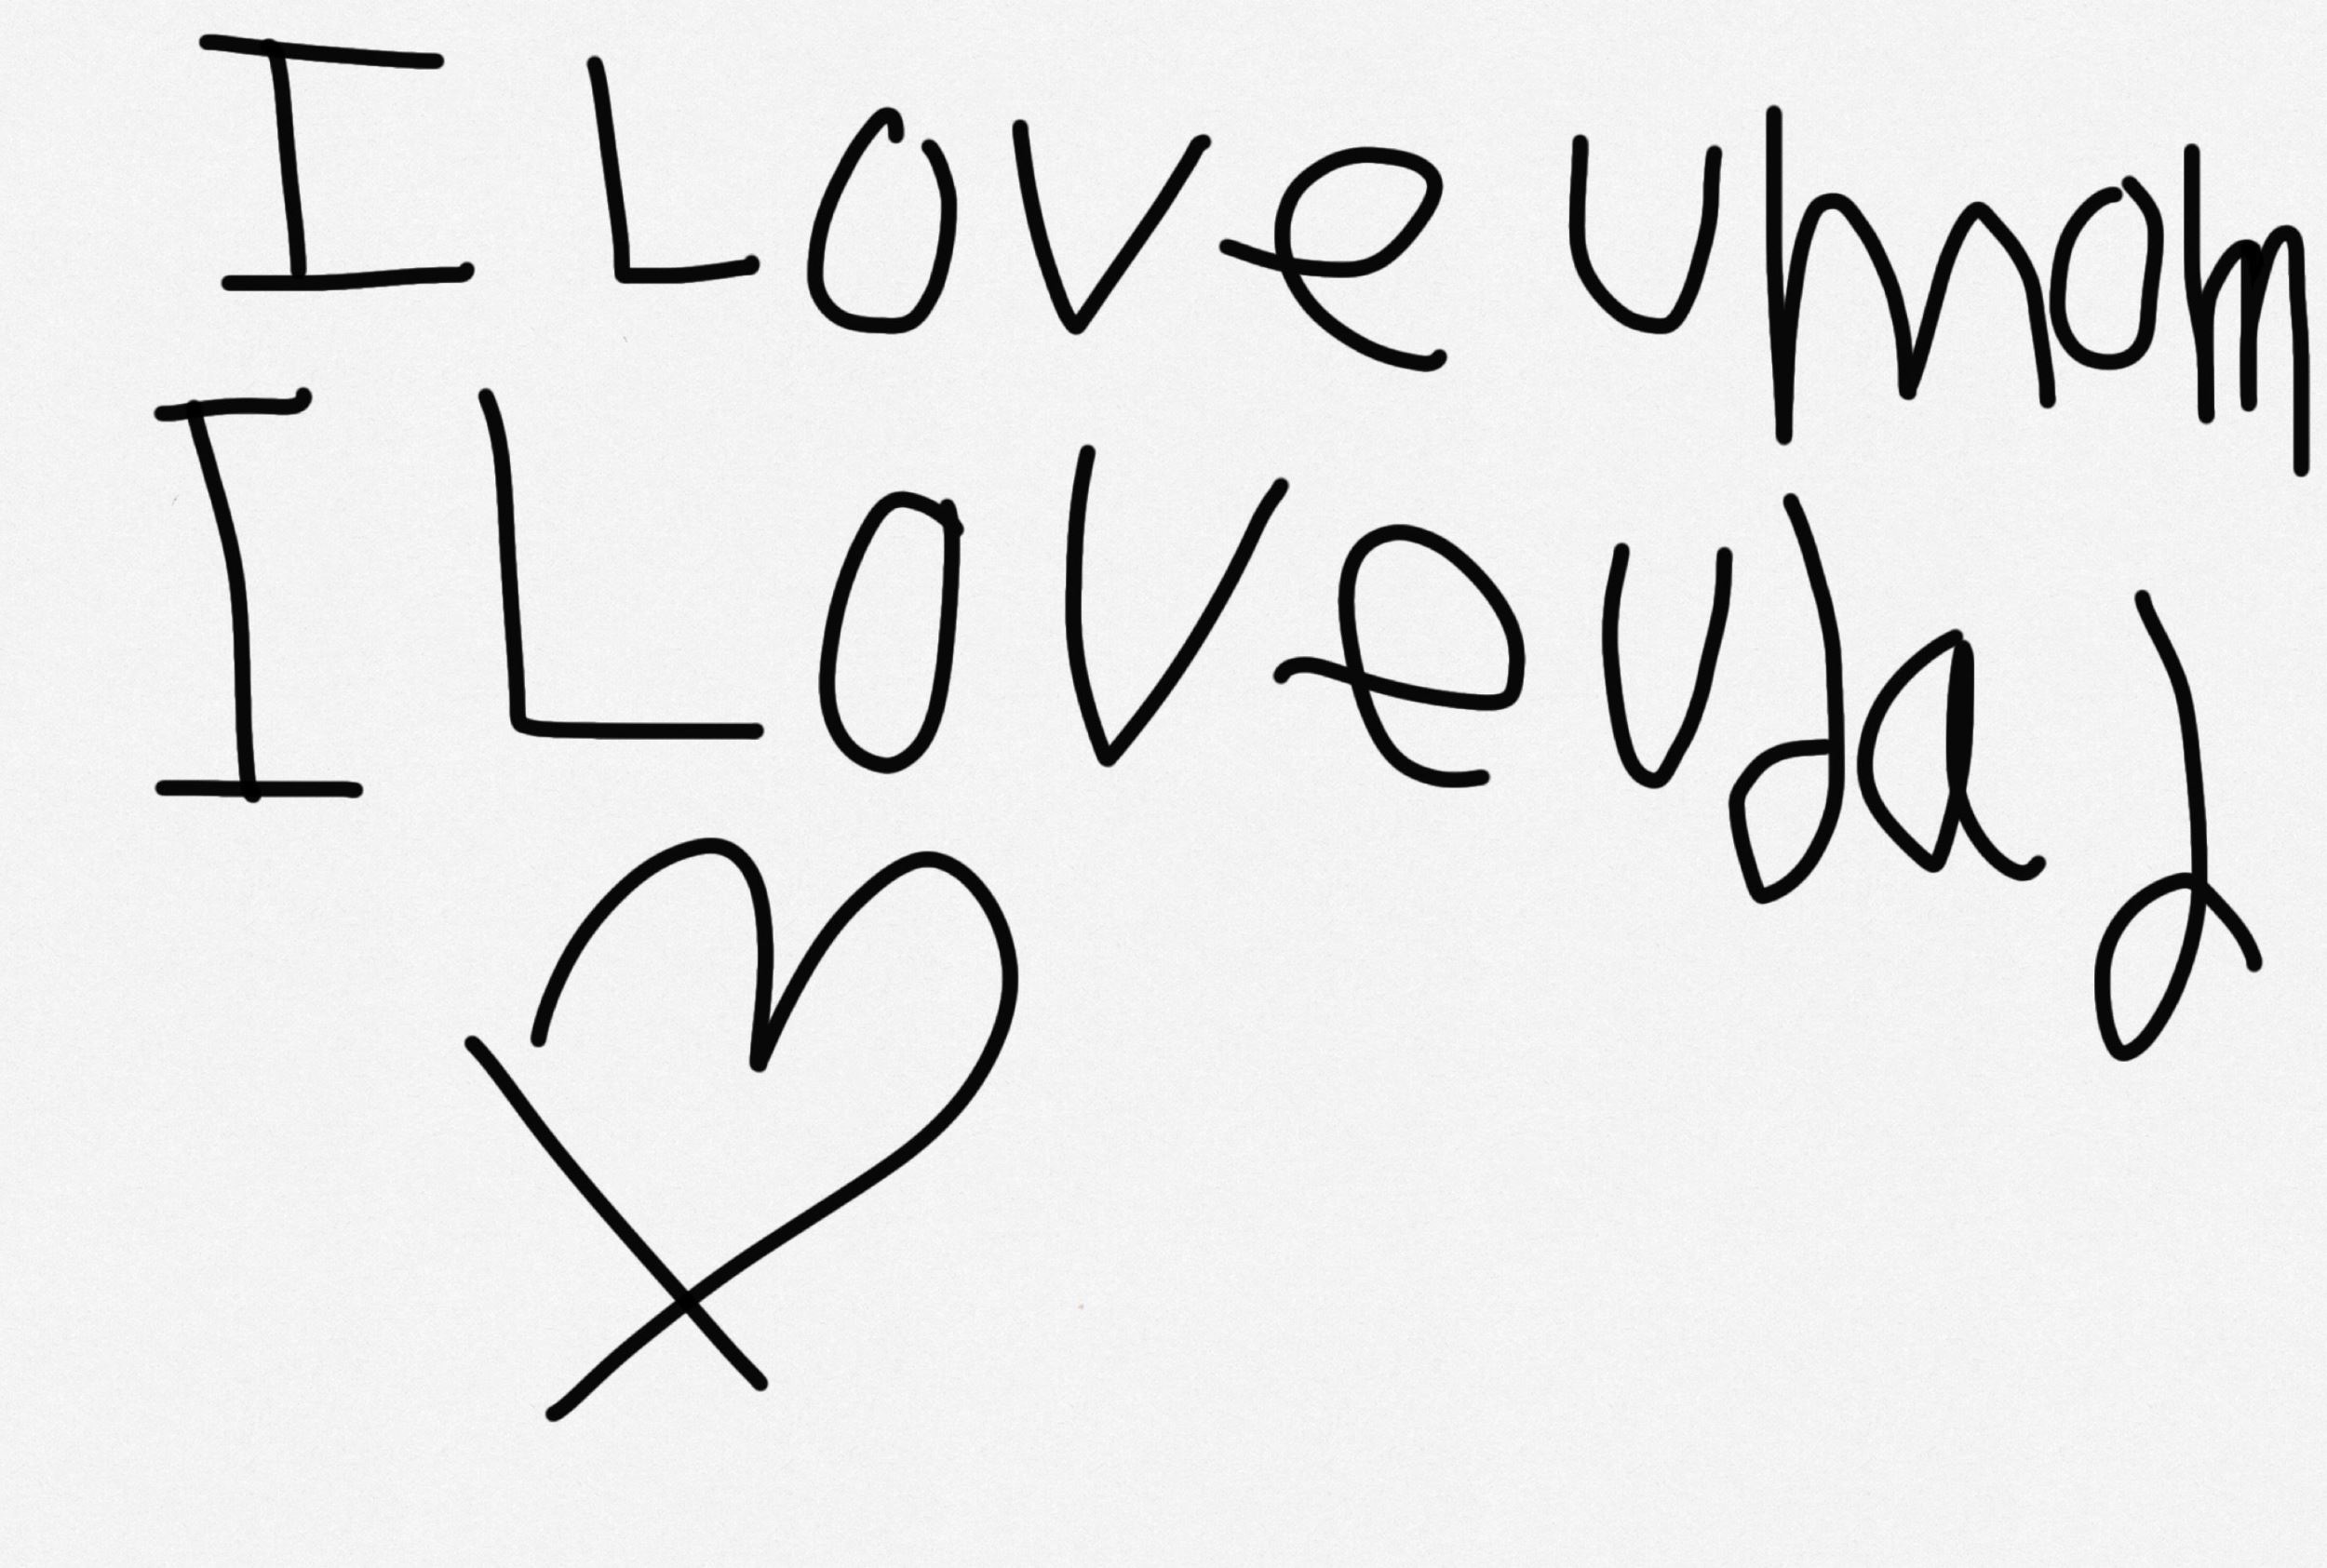 I Love u mom
I Love u dad